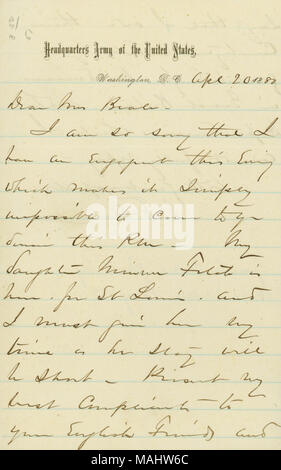 Headquarters Army of the United States,
Washington, D.C. Apl 20 1882
Dear Mrs Beale
I am so sorry that I
have an Engagemt this Evng
which makes it Simply
impossible to come to yr
dinner this Eve - My
Daughter Minnie Fitch is
here. for St Louis. and
I must give her my
time as her stay will
be short - Present my
best Compliments to
your English Friends and
alamy
alamy
Image ID: MAHW6C
www.alamy.com